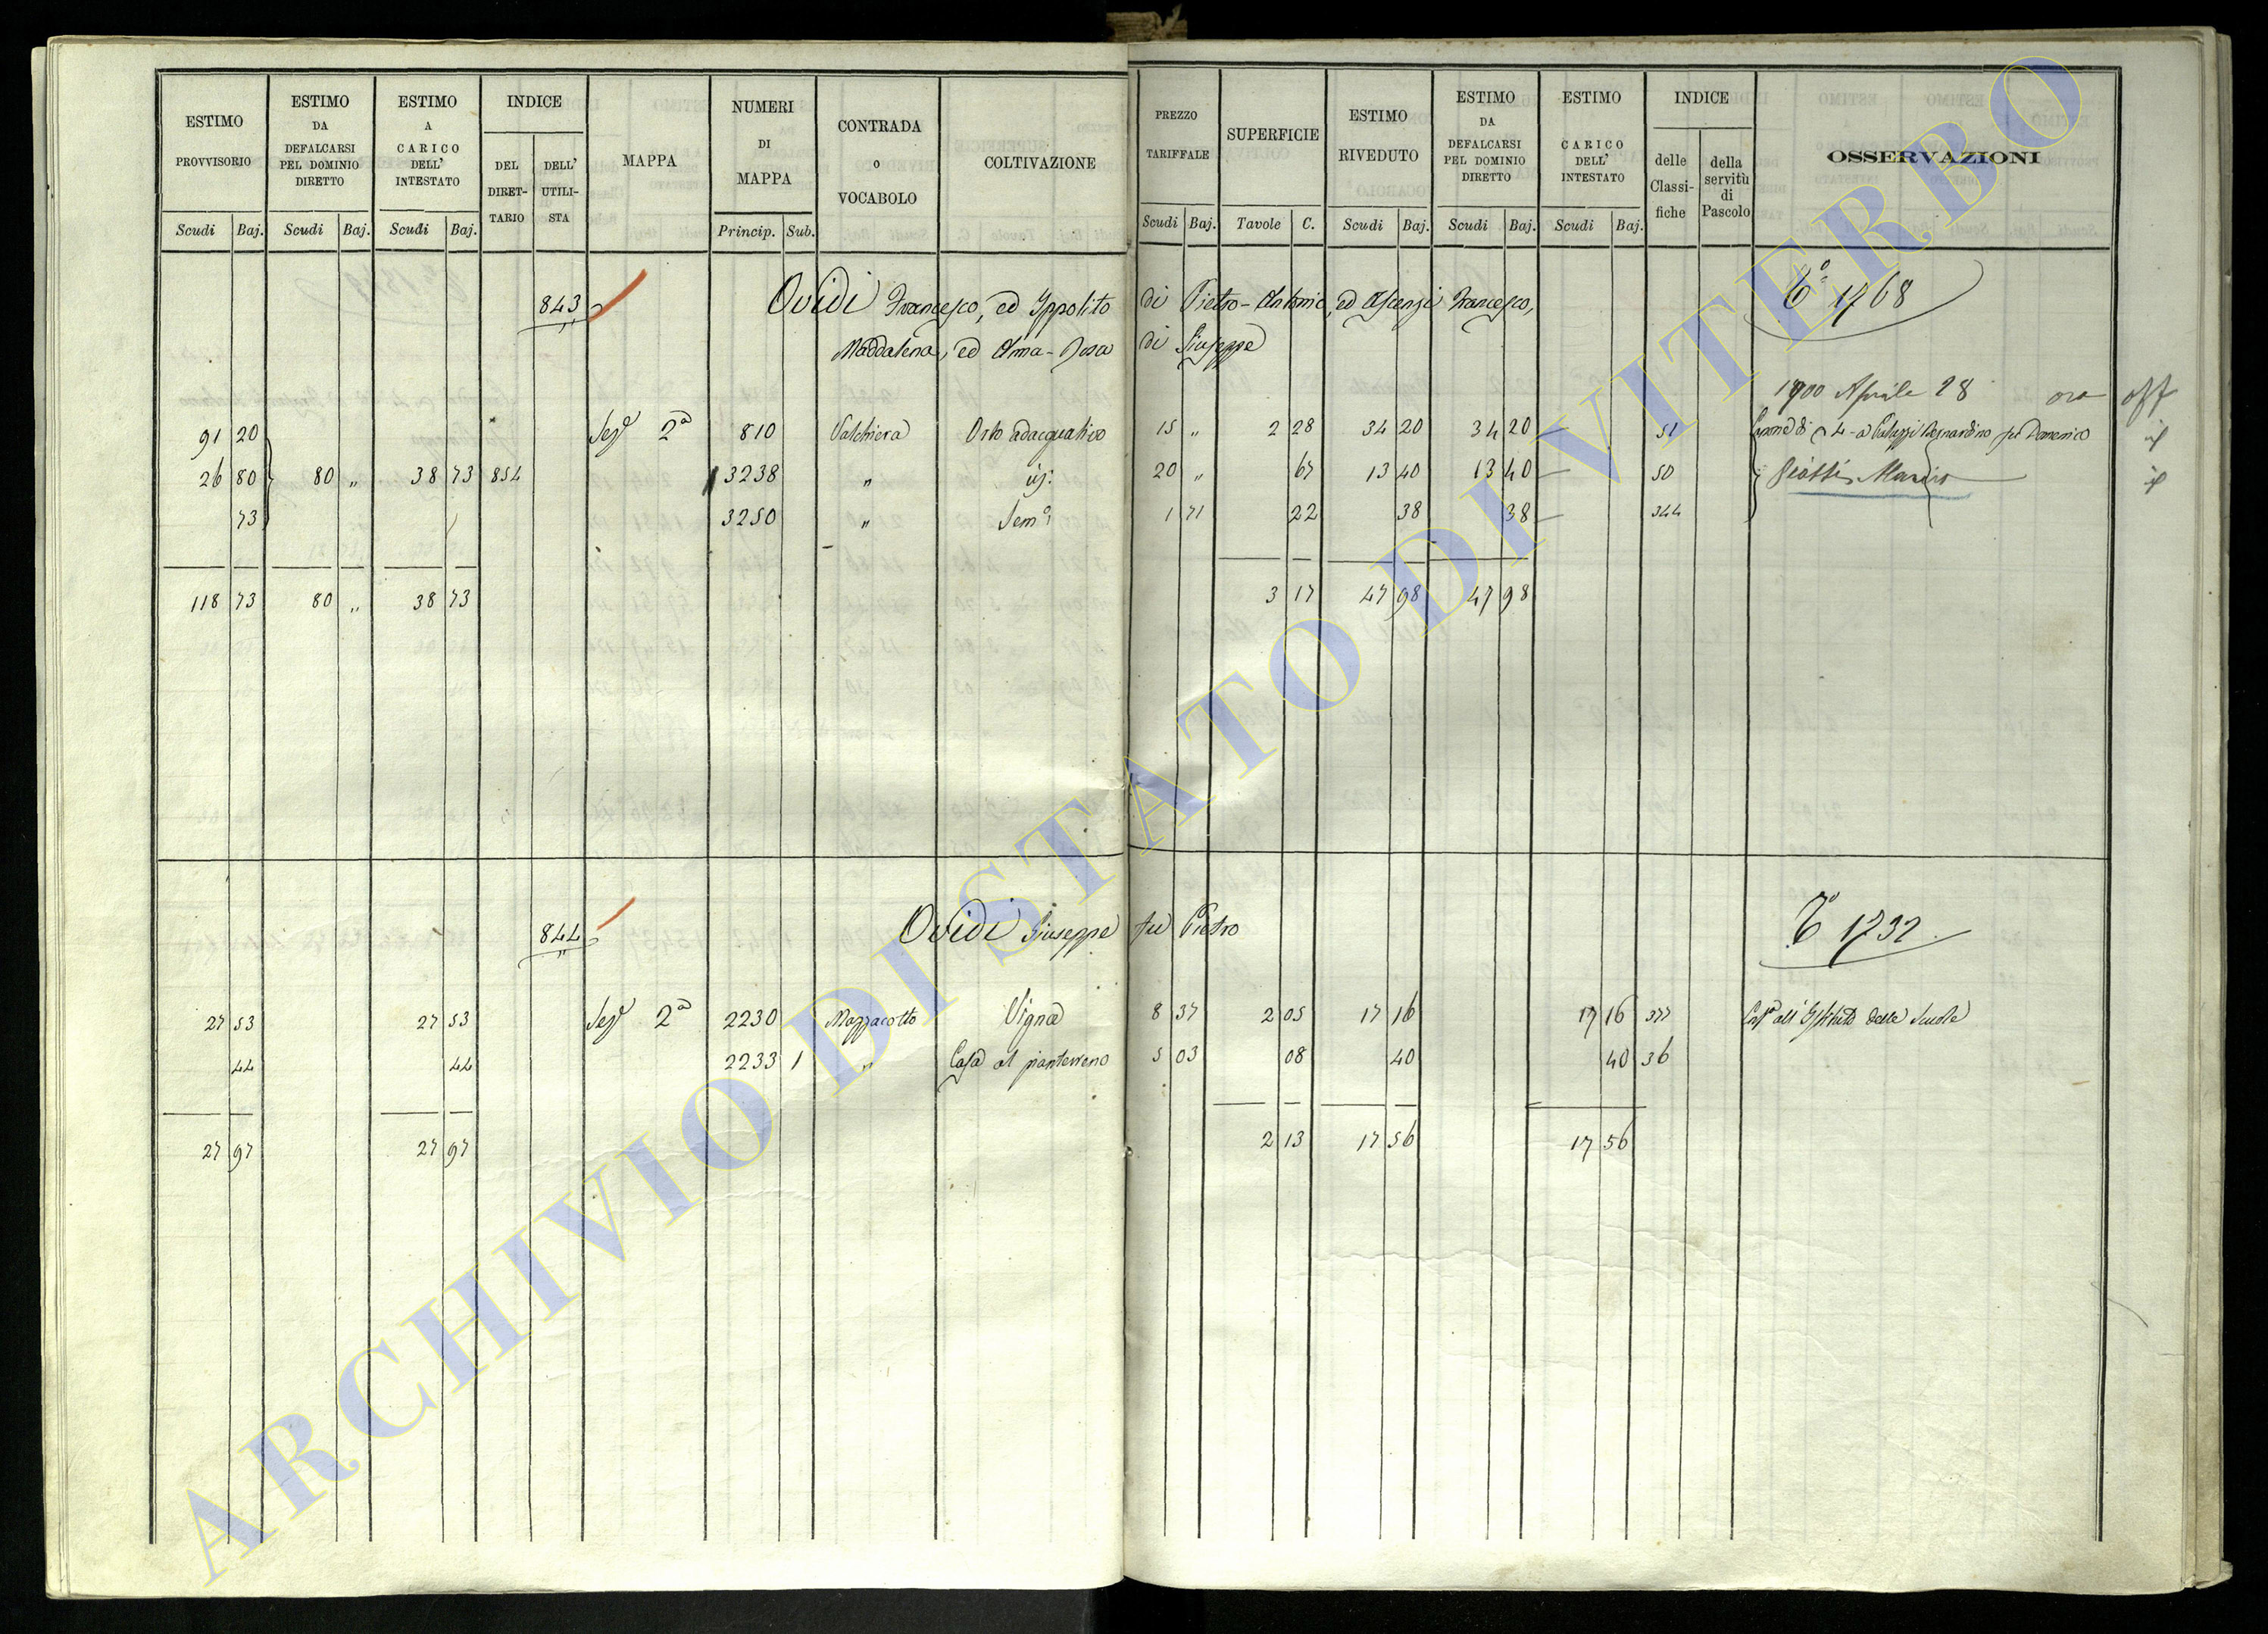 ESTIMO PROVVISORIO Scudi Baj.
ESTIMO DA DEFALCARSI PEL DOMINIO DIRETTO Scudi Baj.
ESTIMO A CARICO DELL' INTESTATO Scudi Baj.
INDICE DEL DIRET-TARIO DELL' UTILI-STA
MAPPA
NUMERI DI MAPPA Princip. Sub.
CONTRADA o VOCABOLO
COLTIVAZIONE
PREZZO TARIFFALE Scudi Baj.
SUPERFICIE Tavole C.
ESTIMO RIVEDUTO Scudi Baj.
ESTIMO DA DEFALCARSI PEL DOMINIO DIRETTO Scudi Baj.
ESTIMO A CARICO DELL' INTESTATO Scudi Baj.
INDICE delle Classi-fiche della servitù di Pascolo
OSSERVAZIONI
843 Ovidi Francesco, ed Ippolito di Pietro-Antonio, ed Ascenzi Francesco, 1768
Maddalena, ed Anna-Rosa di Giuseppe
1900 Aprile 28 ora off
91 20 Sez 2a 810 Valchiera Orto adacquativo 15 " 2 28 34 20 34 20 — 51 Bernardino fu Domenico
26 80 80 " 38 73 854 3238 " id: 20 " 67 13 40 13 40 — 50
73 3250 " Sem: 1 71 22 38 38 — 344
118 73 80 " 38 73 3 17 47 98 47 98
844 Ovidi Giuseppe fu Pietro 1732
27 53 27 53 Sez 2a 2230 Mazzacotto Vigna 8 37 2 05 17 16 17 16 377 all' Istituto delle Scuole
44 44 2233 1 " Casa al pianterreno 5 03 08 40 40 36
27 97 27 97 2 13 17 56 17 56
ARCHIVIO DI STATO DI VITERBO